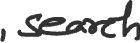 , search